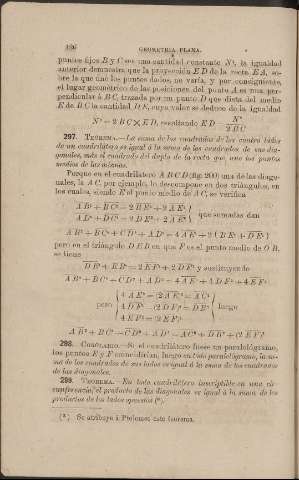 126 GEOMETRIA PLANA.
puntos fijos B y C sea una cantidad constante N², la igualdad
anterior demuestra que la proyección ED de la recta EA, so-
bre la que une los puntos dados, no varía, y por consiguiente,
el lugar geométrico de las posiciones del punto A es una per-
pendicular á BC, trazada por un punto D que dista del medio
E de BC la cantidad DE, cuyo valor se deduce de la igualdad
N² = 2 BC × ED, resultando ED = N² / 2BC
297. TEOREMA.—La suma de los cuadrados de los cuatro lados
de un cuadrilátero es igual á la suma de los cuadrados de sus dia-
gonales, más el cuadrado del duplo de la recta que une los puntos
medios de las mismas.
Porque en el cuadrilátero ABCD (fig. 200) una de las diago-
nales, la AC, por ejemplo, lo descompone en dos triángulos, en
los cuales, siendo E el punto medio de AC, se verifica
AB² + BC² = 2 BE² + 2 AE²
AD² + DC² = 2 DE² + 2 AE² } que sumadas dan
AB² + BC² + CD² + AD² = 4 AE² + 2 (BE² + DE²)
pero en el triángulo DEB en que F es el punto medio de DB,
se tiene
DE² + EB² = 2 EF² + 2 DF² y sustituyendo
AB² + BC² + CD² + AD² = 4 AE² + 4 DF² + 4 EF²
pero { 4 AE² = (2 AE)² = AC²
4 DF² = (2 DF)² = DB²
4 EF² = (2 EF)² } luego
AB² + BC² + CD² + AD² = AC² + DB² + (2 EF)²
298. COROLARIO.—Si el cuadrilátero fuese un paralelógramo,
los puntos E y F coincidirían, luego en todo paralelógramo, la su-
ma de los cuadrados de sus lados es igual á la suma de los cuadrados
de las diagonales.
299. TEOREMA.—En todo cuadrilátero inscriptible en una cir-
cunferencia, el producto de las diagonales es igual á la suma de los
productos de los lados opuestos (*).
(*) Se atribuye á Ptolomeo este teorema.